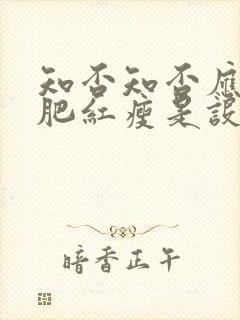 知否知否應
肥紅瘦是設
暗香正午